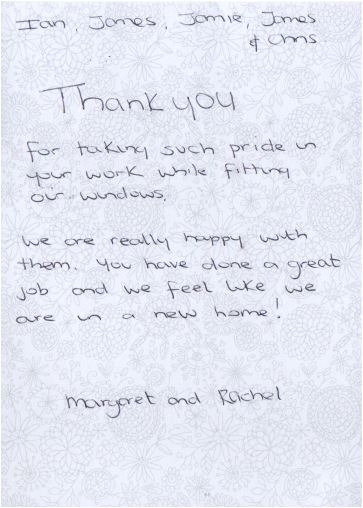 Ian, James, Jamie, James
& Chris
Thank you
for taking such pride in
your work while fitting
our windows.
We are really happy with
them. You have done a great
job and we feel like we
are in a new home!
Margaret and Rachel